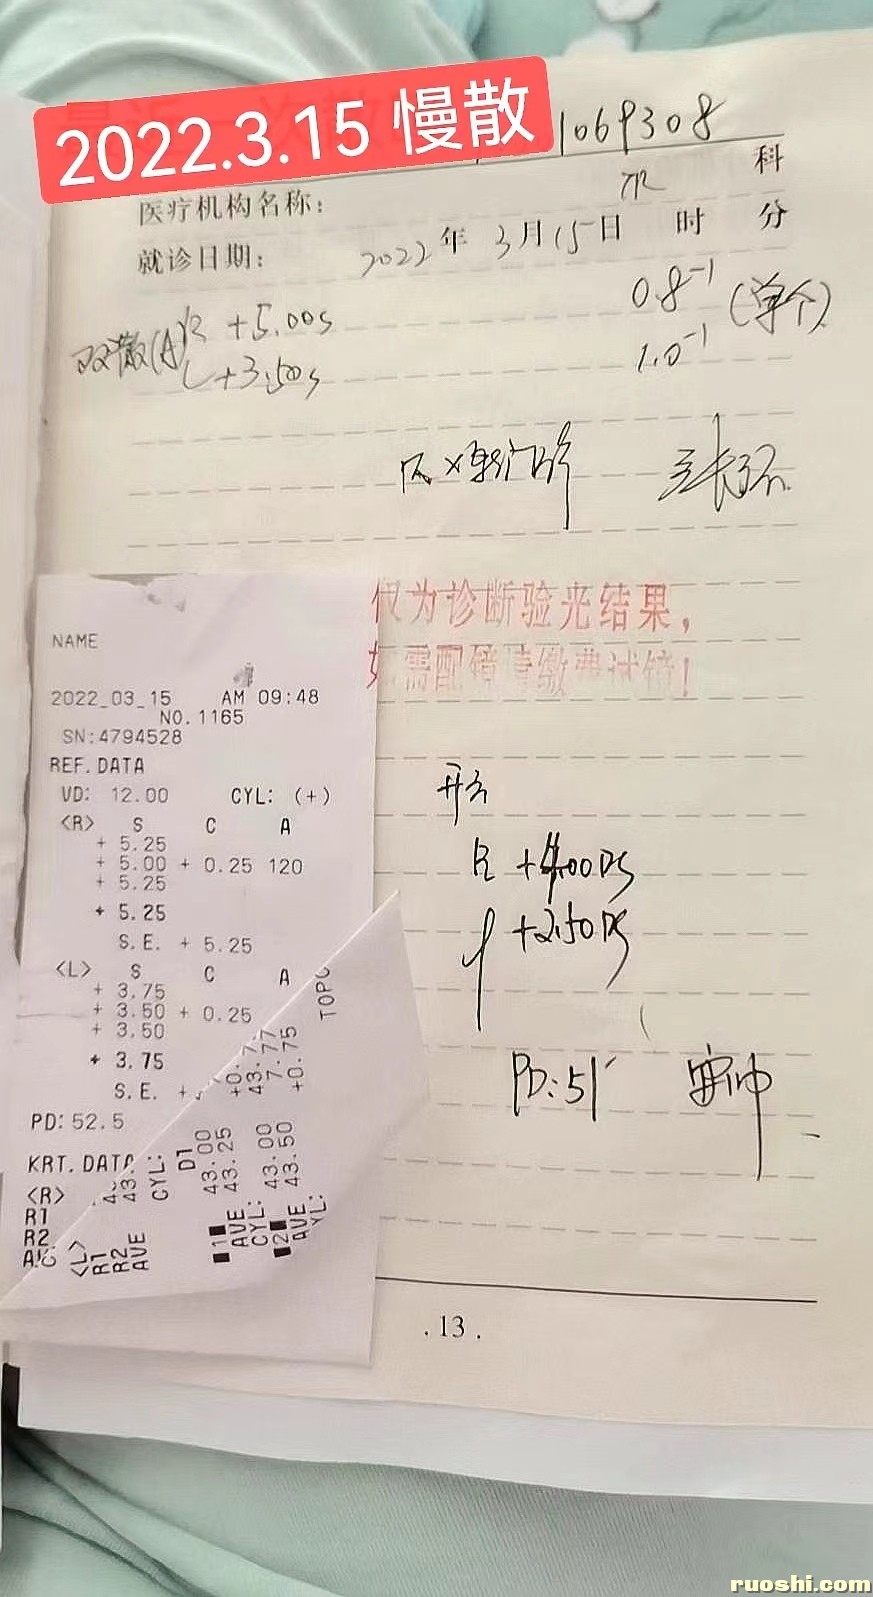 2022.3.15 慢散
1069308
医疗机构名称: 科
就诊日期: 2022年 3月15日 时 分
双散(A) R +5.00s 0.8⁻¹
L +3.50s 1.0⁻¹ (单个)
仅为诊断验光结果，
如需配镜请缴费试镜！
NAME
2022_03_15 AM 09:48
NO.1165
SN:4794528
REF.DATA
VD: 12.00 CYL: (+)
<R> S C A
+ 5.25
+ 5.00 + 0.25 120
+ 5.25
+ 5.25
S.E. + 5.25
<L> S C A
+ 3.75
+ 3.50 + 0.25
+ 3.50
+ 3.75
S.E. +
PD:52.5
KRT.DATA
<R>
R1
R2
<L>
R1
R2
AVE
CYL:
D1
43.00
43.25
AVE
CYL:
43.00
43.50
AVE
CYL:
43.77
7.77
+0.75
开方
R +4.00DS
+2.50DS
PD:51
.13.
ruoshi.com